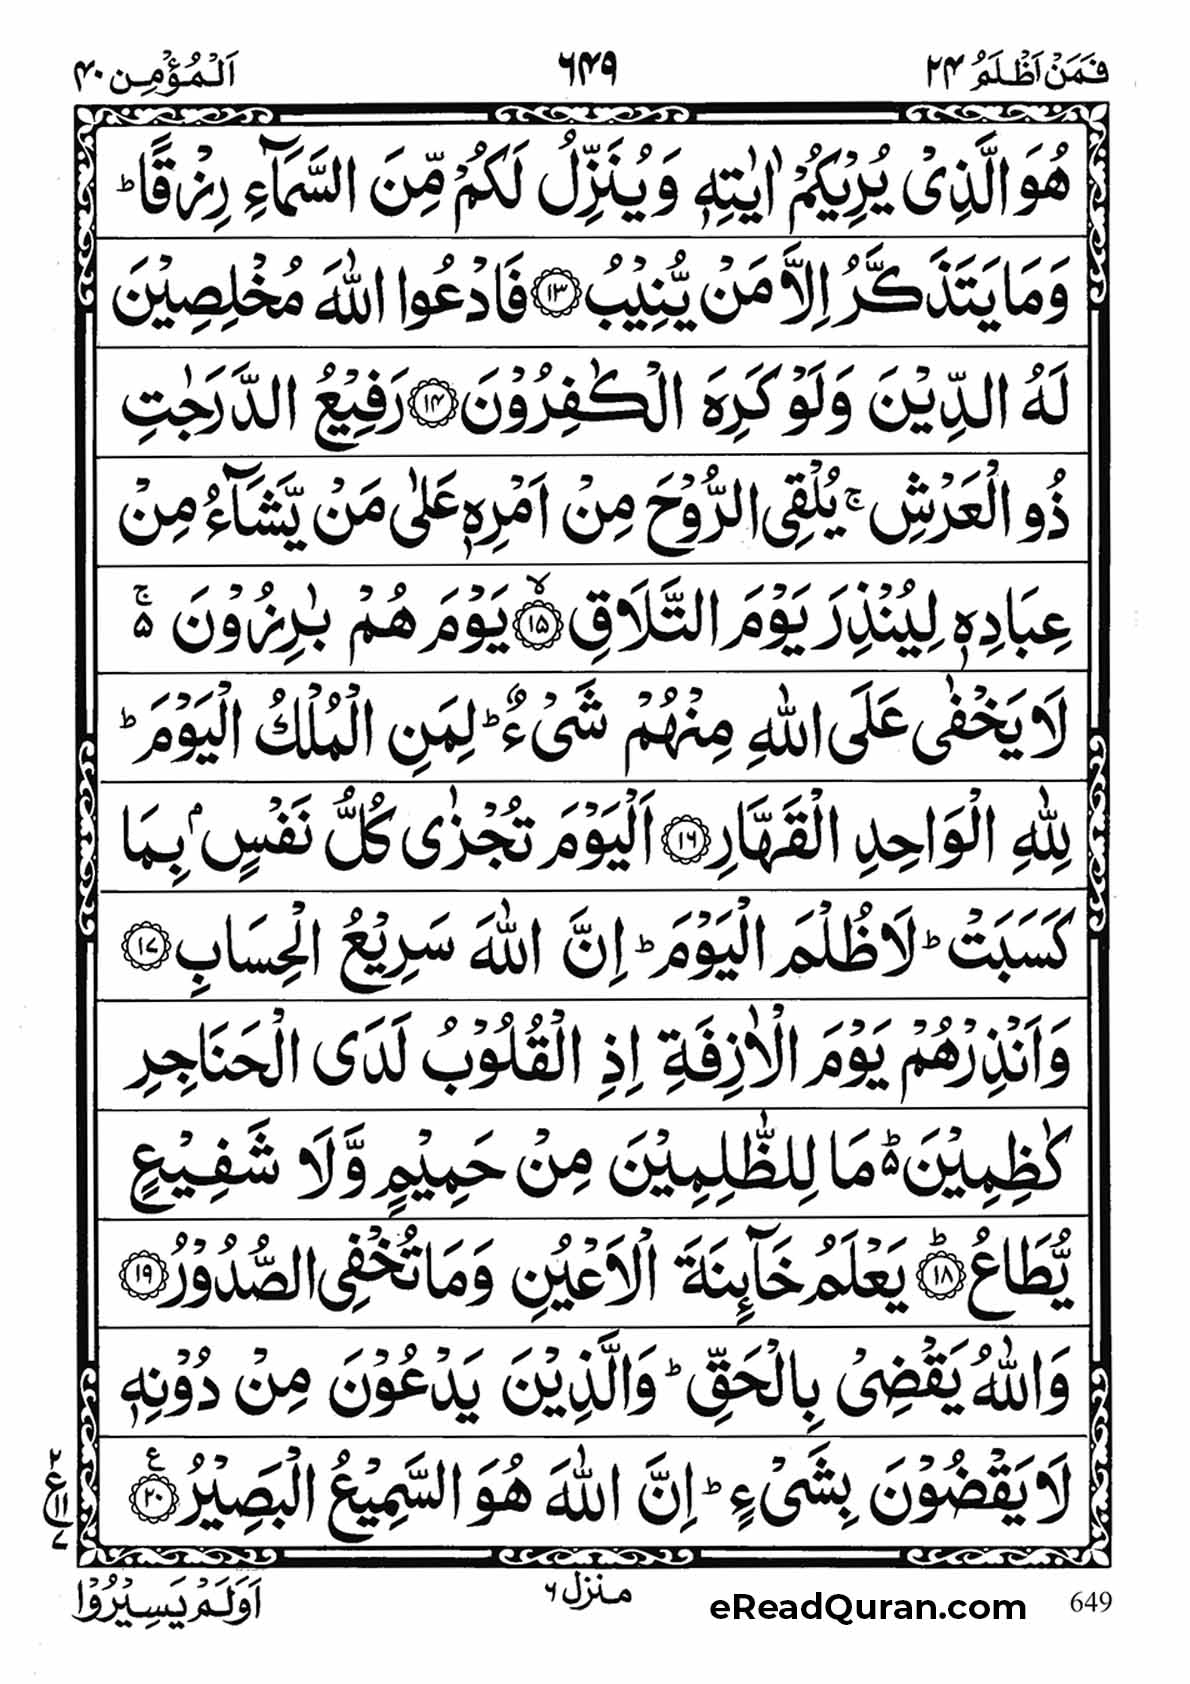 فَمَنْ اَظْلَمُ ۲۴ ۶۴۹ اَلْمُؤْمِن ۴۰
هُوَ الَّذِیْ یُرِیْكُمْ اٰیٰتِهٖ وَیُنَزِّلُ لَكُمْ مِّنَ السَّمَآءِ رِزْقًا ؕ
وَمَا یَتَذَكَّرُ اِلَّا مَنْ یُّنِیْبُ ۱۳ فَادْعُوا اللّٰهَ مُخْلِصِیْنَ
لَهُ الدِّیْنَ وَلَوْ كَرِهَ الْكٰفِرُوْنَ ۱۴ رَفِیْعُ الدَّرَجٰتِ
ذُو الْعَرْشِ ۚ یُلْقِی الرُّوْحَ مِنْ اَمْرِهٖ عَلٰی مَنْ یَّشَآءُ مِنْ
عِبَادِهٖ لِیُنْذِرَ یَوْمَ التَّلَاقِ ۙ۱۵ یَوْمَ هُمْ بٰرِزُوْنَ ۚ۵
لَا یَخْفٰی عَلَی اللّٰهِ مِنْهُمْ شَیْءٌ ؕ لِمَنِ الْمُلْكُ الْیَوْمَ ؕ
لِلّٰهِ الْوَاحِدِ الْقَهَّارِ ۱۶ اَلْیَوْمَ تُجْزٰی كُلُّ نَفْسٍۭ بِمَا
كَسَبَتْ ؕ لَا ظُلْمَ الْیَوْمَ ؕ اِنَّ اللّٰهَ سَرِیْعُ الْحِسَابِ ۱۷
وَاَنْذِرْهُمْ یَوْمَ الْاٰزِفَةِ اِذِ الْقُلُوْبُ لَدَی الْحَنَاجِرِ
كٰظِمِیْنَ ؕ۵ مَا لِلظّٰلِمِیْنَ مِنْ حَمِیْمٍ وَّلَا شَفِیْعٍ
یُّطَاعُ ؕ۱۸ یَعْلَمُ خَآئِنَةَ الْاَعْیُنِ وَمَا تُخْفِی الصُّدُوْرُ ۱۹
وَاللّٰهُ یَقْضِیْ بِالْحَقِّ ؕ وَالَّذِیْنَ یَدْعُوْنَ مِنْ دُوْنِهٖ
لَا یَقْضُوْنَ بِشَیْءٍ ؕ اِنَّ اللّٰهَ هُوَ السَّمِیْعُ الْبَصِیْرُ ۲۰ ع
۲ ع ۱۱ ۷
اَوَلَمْ یَسِیْرُوْا منزل ۶ eReadQuran.com 649